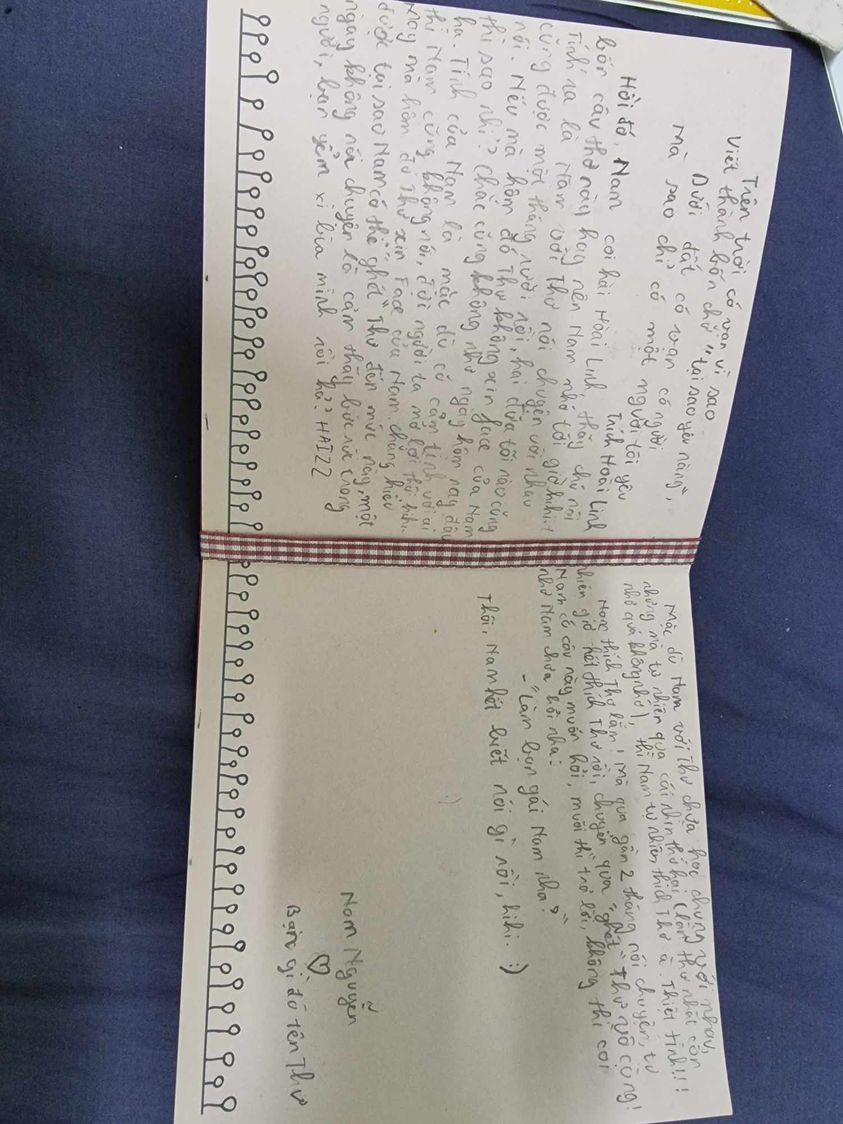 Trên trời có vạn vì sao
Viết thành bốn chữ "tại sao yêu nàng",
Dưới đất có vạn có người
Mà sao chỉ có một người tôi yêu
Trích Hoài Linh
Hồi đó, Nam coi hài Hoài Linh thấy chú nói
bốn câu thơ này hay nên Nam nhớ tới giờ hihi..!
Tính ra là Nam với Thư nói chuyện với nhau
cũng được một tháng rưỡi rồi, hai đứa tối nào cũng
nói. Nếu mà hôm đó Thư không xin face của Nam
thì sao nhỉ? Chắc cũng không như ngày hôm nay đâu
ha. Tính của Nam là mặc dù có cảm tình với ai
thì Nam cũng không nói, đợi người ta mở lời thôi hihi.
May mà hôm đó Thư xin Face của Nam. chứng hiểu
được tại sao Nam có thể "ghét" Thư đến mức này, một
ngày không nói chuyện là cảm thấy bức rức trong
người, bạn yểm xì bùa mình rồi hả? HAIZZ
Mặc dù Nam với Thư chưa học chung với nhau,
nhưng mà tự nhiên qua cái nhìn thứ hai (lần thứ nhất còn
nhớ quá không nhớ), thì Nam tự nhiên thích Thư à. Thiệt tình!!!
Nam thích Thư lắm! Mà qua gần 2 tháng nói chuyện, tự
nhiên giờ hết thích Thư rồi, chuyển qua "ghét" Thư vô cùng!
Nam có câu này muốn hỏi, muốn thì trả lời, không thì coi
như Nam chưa hỏi nha:
- "Làm bạn gái Nam nha?"
Thôi, Nam hết biết nói gì rồi, hihi. :)
Nam Nguyễn
♡
Bạn gì đó tên Thư